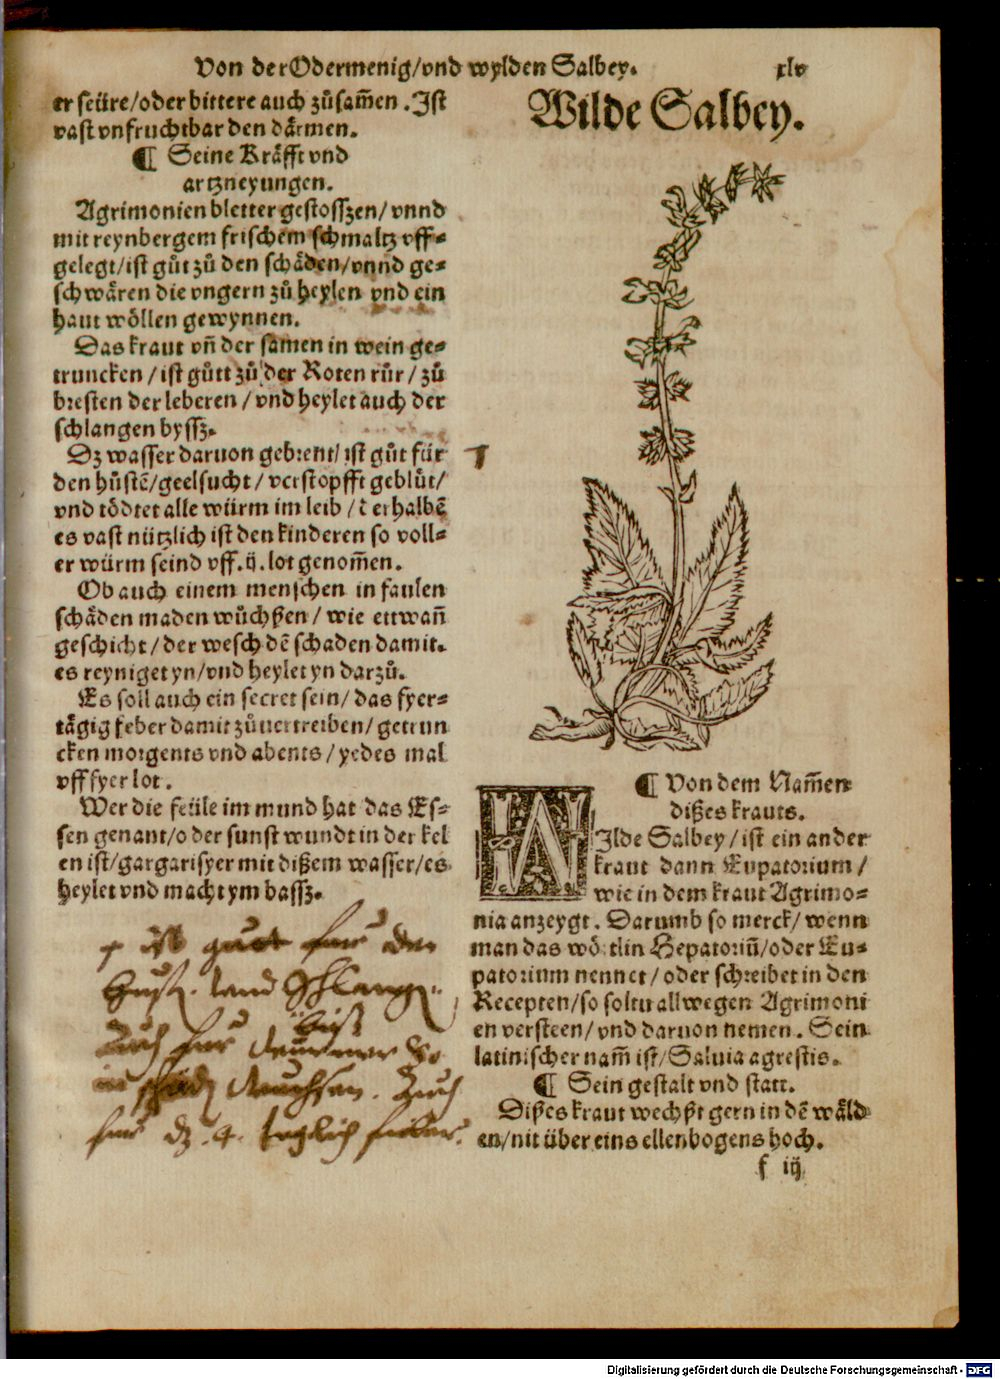 Von der Odermenig/vnd wylden Salbey.
xlv
er seüre/oder bittere auch zůsam̃en. Ist
vast vnfruchtbar den därmen.
¶ Seine Kräfft vnd
artzneyungen.
Agrimonien bletter gestosszen/vnnd
mit reynbergem frischem schmaltz vff⸗
gelegt/ist gůt zů den schäden/vnnd ge⸗
schwären die vngern zů heylen vnd ein
haut wöllen gewynnen.
Das kraut vñ der samen in wein ge⸗
truncken/ist gůtt zů der Roten růr/zů
bresten der leberen/vnd heylet auch der
schlangen byssz.
Dz wasser daruon gebrent/ist gůt für
den hůstẽ/geelsucht/verstopfft geblůt/
vnd tödtet alle würm im leib/derhalbẽ
es vast nützlich ist den kinderen so voll⸗
er würm seind vff .ij. lot genom̃en.
Ob auch einem menschen in faulen
schäden maden wůchßen/wie ettwañ
geschicht/der wesch dẽ schaden damit.
es reyniget yn/vnd heylet yn darzů.
Es soll auch ein secret sein/das fyer⸗
tägig feber damit zůuertreiben/getrun
cken morgents vnd abents/yedes mal
vff fyer lot.
Wer die feüle im mund hat das Es⸗
sen genant/oder sunst wundt in der kel
en ist/gargarisyer mit dißem wasser/es
heylet vnd macht ym bassz.
ist gutt fur den
Schlangen
biss
Auch fur
Auch
fur dz .4. teglich feber.
Wilde Salbey.
¶ Von dem Nam̃en
dißes krauts.
WIlde Salbey/ist ein ander
kraut dann Eupatorium/
wie in dem kraut Agrimo⸗
nia anzeygt. Darumb so merck/wenn
man das wörtlin Hepatoriũ/oder Eu⸗
patorium nennet/oder schreibet in den
Recepten/so soltu allwegen Agrimoni
en versteen/vnd daruon nemen. Sein
latinischer nam̃ ist/Saluia agrestis.
¶ Sein gestalt vnd statt.
Dißes kraut wechßt gern in dẽ wäld
en/nit über eins ellenbogens hoch.
f iij
Digitalisierung gefördert durch die Deutsche Forschungsgemeinschaft - DFG